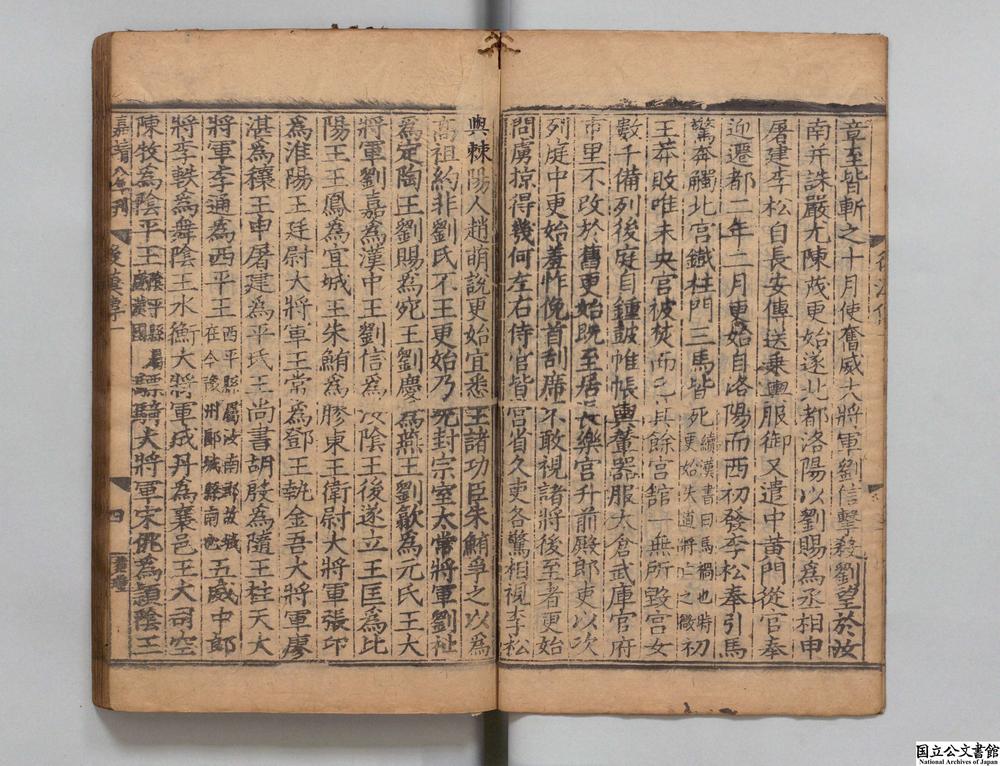 章至皆斬之十月使奮威大將軍劉信擊殺劉望於汝
南并誅嚴尤陳茂更始遂北都洛陽以劉賜爲丞相申
屠建李松自長安傳送乘輿服御又遣中黃門從官奉
迎遷都二年二月更始自洛陽而西初發李松奉引馬
驚奔觸北宮鐵柱門三馬皆死續漢書曰馬禍也時更始失道將亡之徵初
王莽敗唯未央宮被焚而已其餘宮舘一無所毀宮女
數千備列後庭自鍾鼓帷帳輿輦器服太倉武庫官府
市里不改於舊更始既至居長樂宮升前殿郎吏以次
列庭中更始羞怍俛首刮席不敢視諸將後至者更始
問虜掠得幾何左右侍官皆宮省久吏各驚相視李松
與棘陽人趙萌說更始宜悉王諸功臣朱鮪爭之以爲
高祖約非劉氏不王更始乃先封宗室太常將軍劉祉
爲定陶王劉賜爲宛王劉慶爲燕王劉歙爲元氏王大
將軍劉嘉爲漢中王劉信爲汝陰王後遂立王匡爲比
陽王王鳳爲宜城王朱鮪爲膠東王衛尉大將軍張卬
爲淮陽王廷尉大將軍王常爲鄧王執金吾大將軍廖
湛爲穰王申屠建爲平氏王尚書胡殷爲隨王柱天大
將軍李通爲西平王西平縣屬汝南郡故城在今豫州郾城縣南也五威中郎
將李軼爲舞陰王水衡大將軍成丹爲襄邑王大司空
陳牧爲陰平王陰平縣屬廣漢國驃騎大將軍宋佻爲潁陰王
嘉靖八年刊
後漢傳一
四
国立公文書館
National Archives of Japan